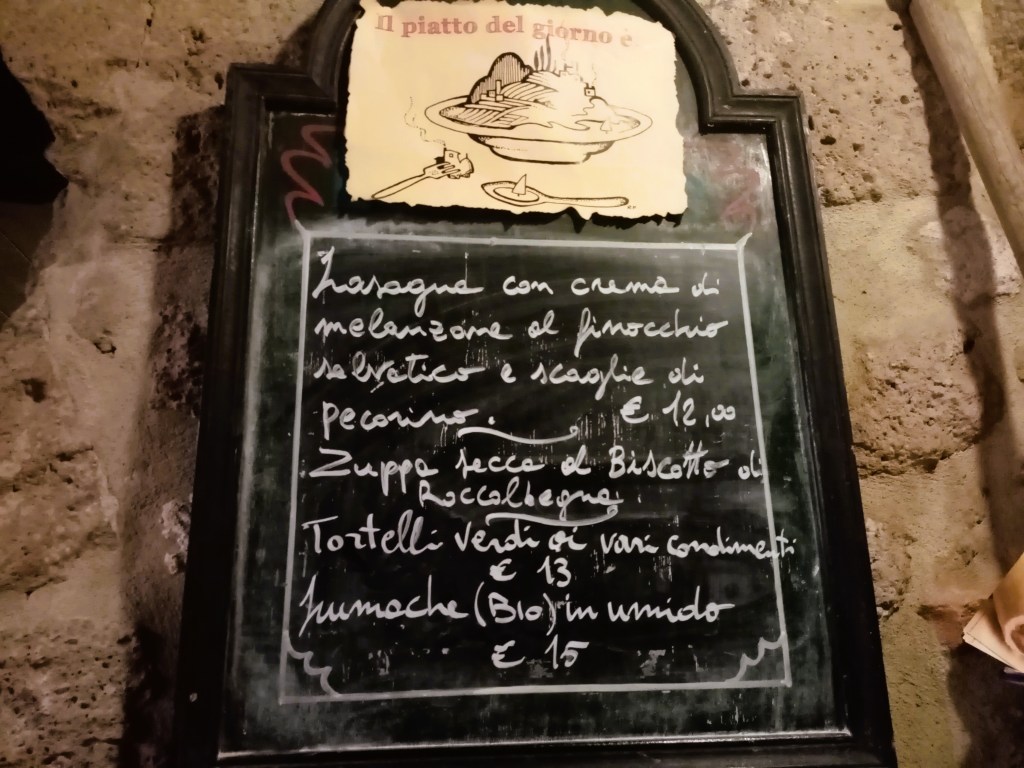 Il piatto del giorno è
Lasagna con crema di
melanzane al finocchio
selvatico e scaglie di
pecorino. € 12,00
Zuppa secca al Biscotto di
Roccalbegna
Tortelli Verdi ai vari condimenti
€ 13
Lumache (Bio) in umido
€ 15